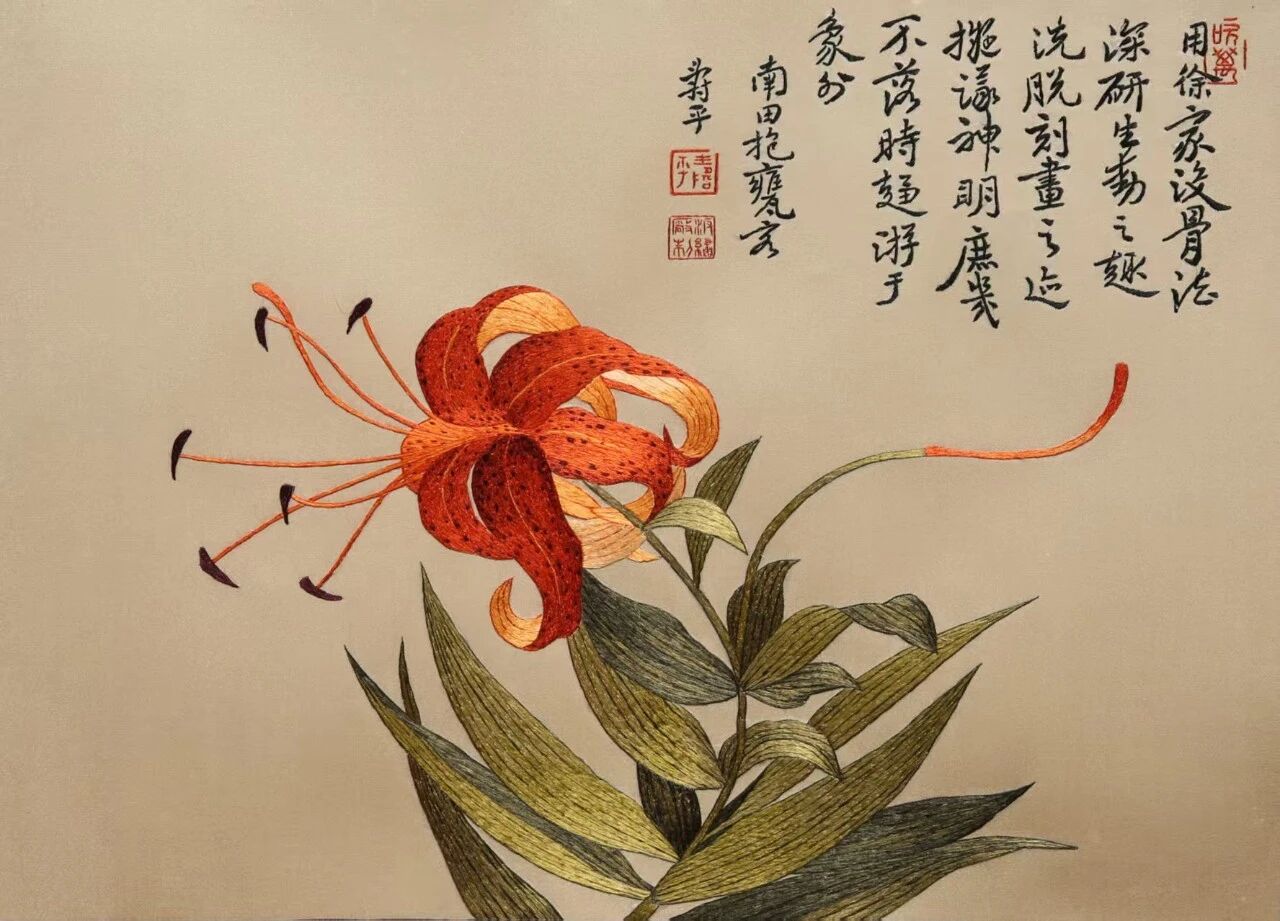 用徐家没骨法
深研生動之趣
洗脱刻畫之迹
擬議神明庶幾
不落時趨游于
象外
南田抱甕客
壽平